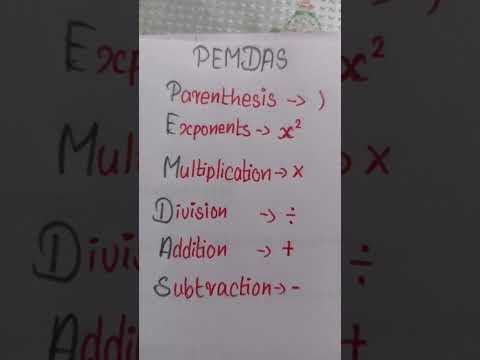 PEMDAS
Parenthesis -> )
Exponents -> x²
Multiplication -> ×
Division -> ÷
Addition -> +
Subtraction -> -